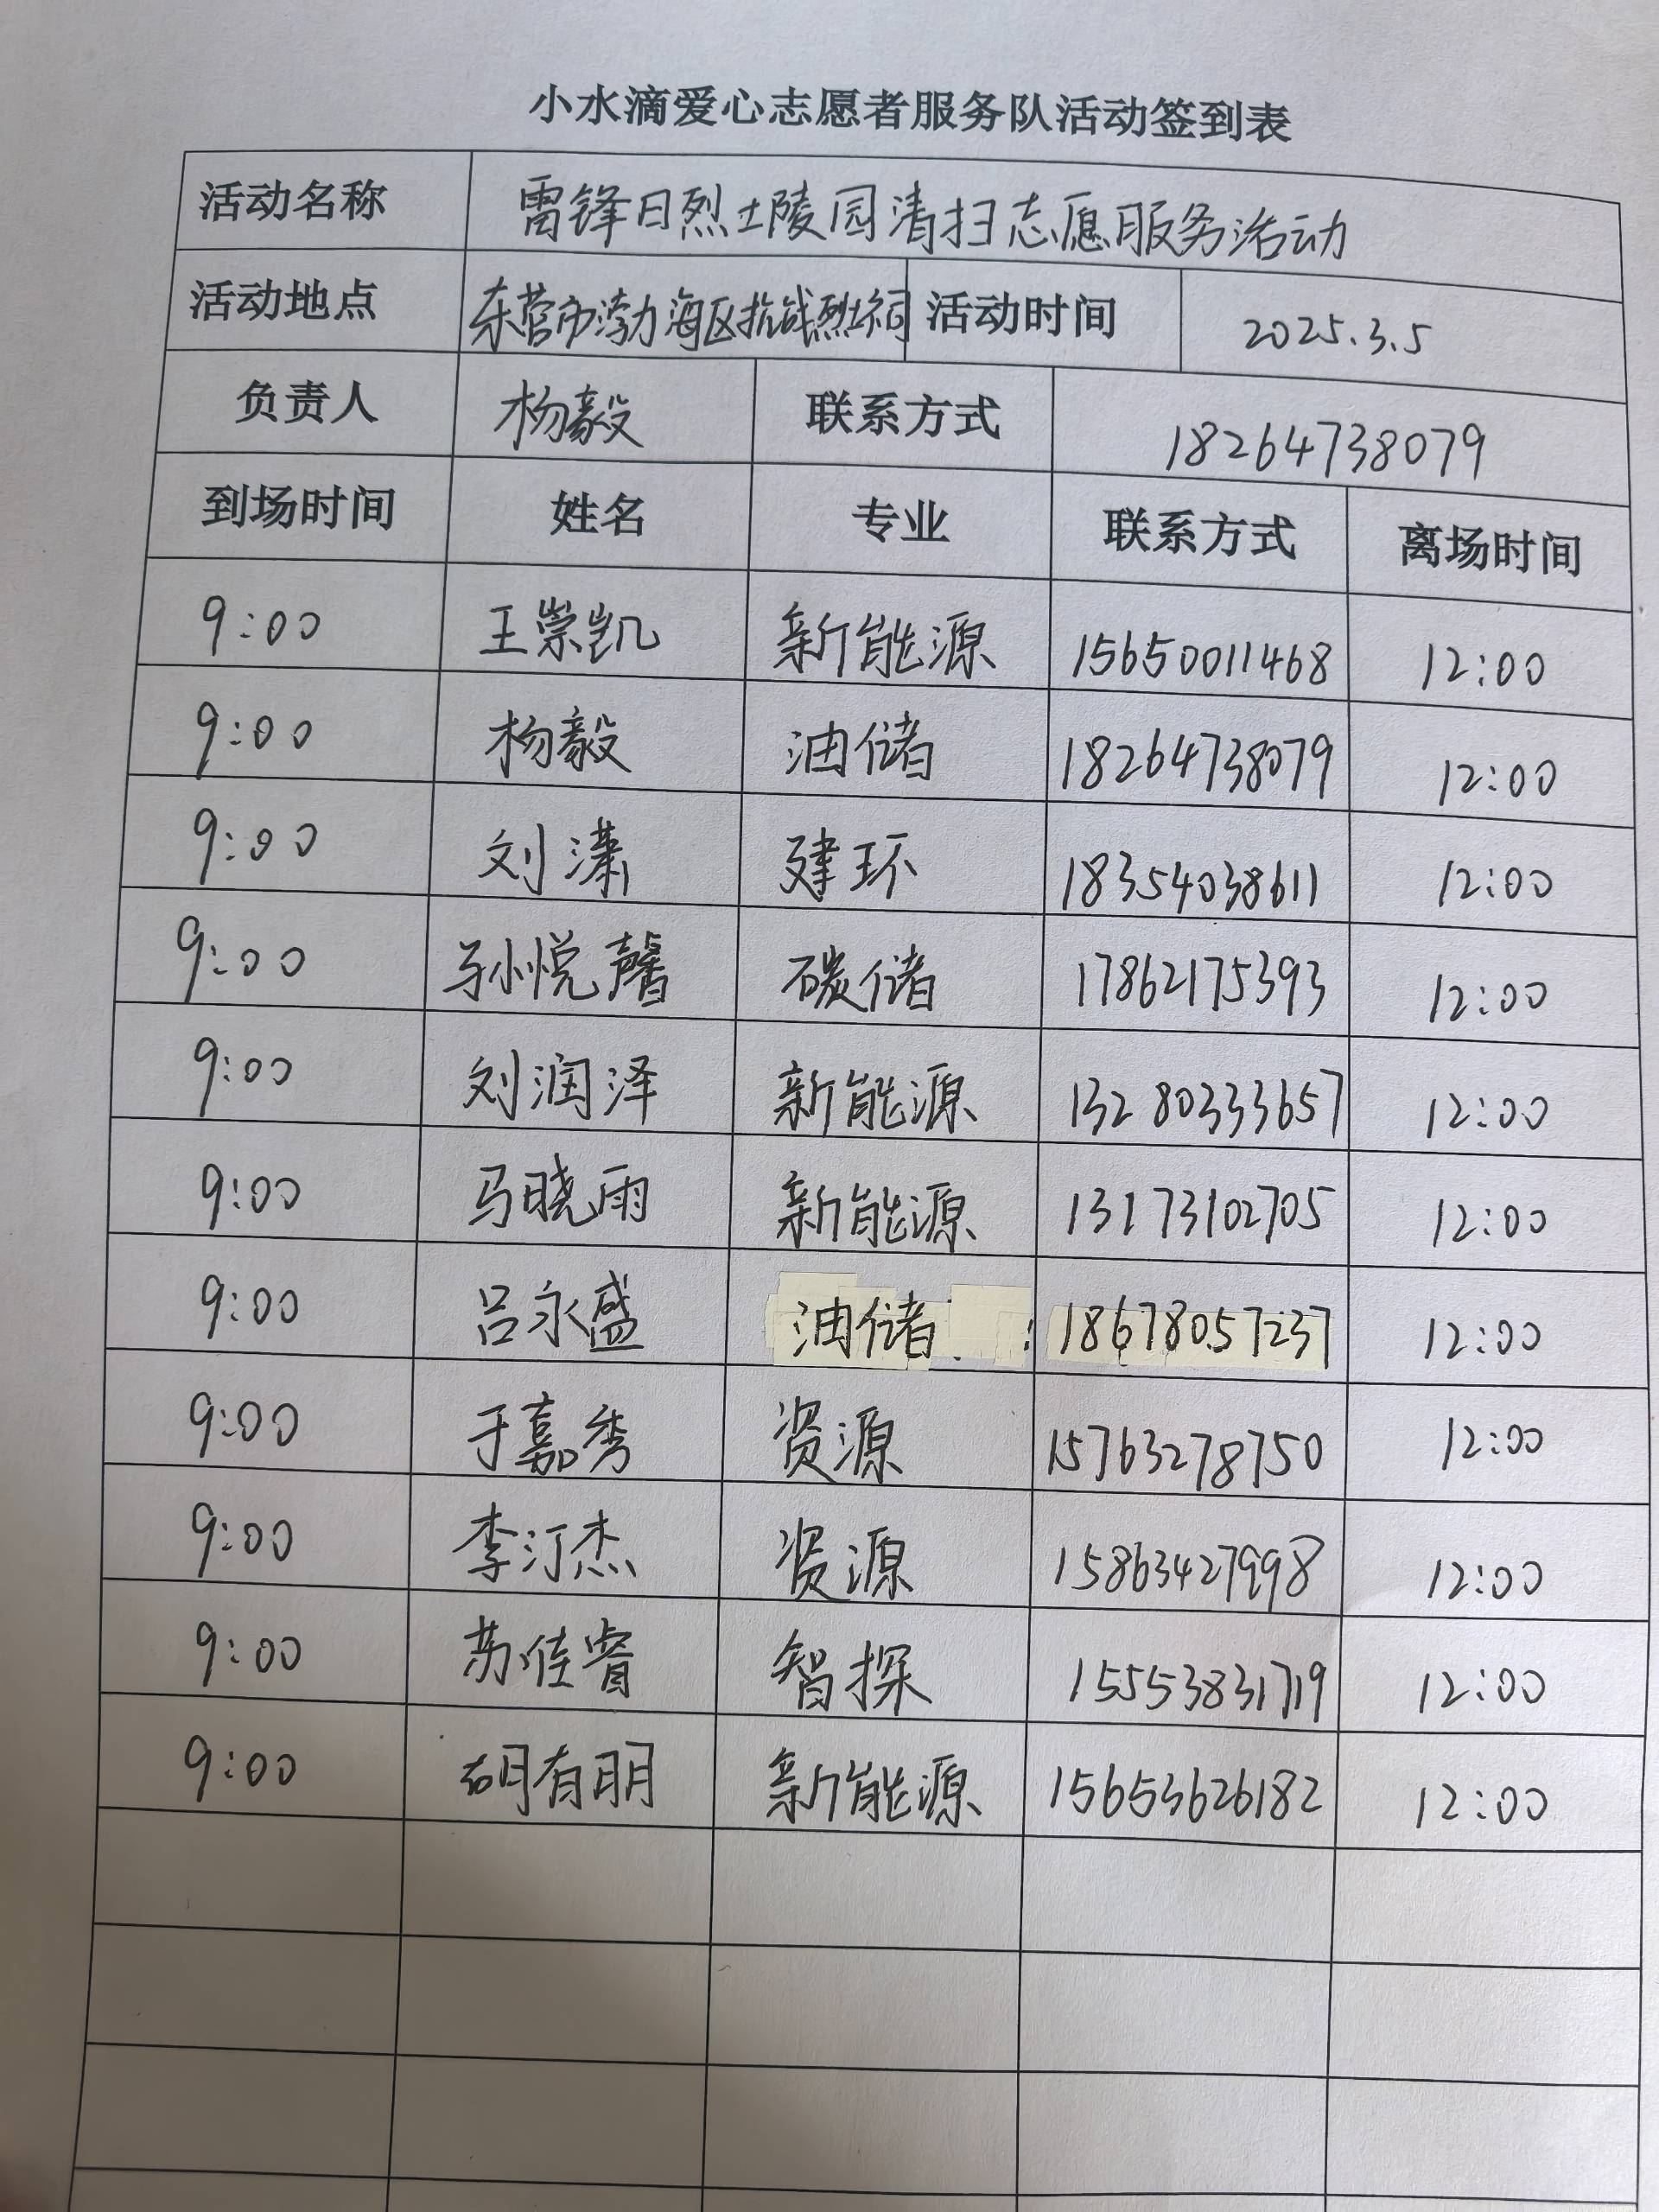 小水滴爱心志愿者服务队活动签到表
活动名称 雷锋日烈士陵园清扫志愿服务活动
活动地点 东营市渤海区抗战烈士祠 活动时间 2025.3.5
负责人 杨毅 联系方式 18264738079
到场时间 姓名 专业 联系方式 离场时间
9:00 王崇凯 新能源 15650011468 12:00
9:00 杨毅 油储 18264738079 12:00
9:00 刘潇 建环 18354038611 12:00
9:00 孙悦馨 碳储 17862175393 12:00
9:00 刘润泽 新能源 13280333657 12:00
9:00 马晓雨 新能源 13173102705 12:00
9:00 吕永盛 油储 18678057237 12:00
9:00 于嘉秀 资源 15763278750 12:00
9:00 李汀杰 资源 15863427998 12:00
9:00 苏佳睿 智探 15553831719 12:00
9:00 胡有朋 新能源 15653626182 12:00